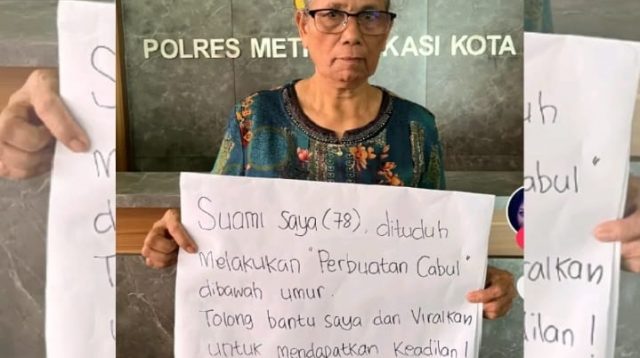 POLRES METR KASI KOTA
Suami saya (78), dituduh
Melakukan "Perbuatan Cabul"
dibawah umur.
Tolong bantu saya dan Viralkan
untuk mendapatkan keadilan!